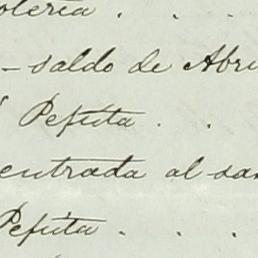 olería . . .
- saldo de Abri
Pepita . .
entrada al sa
Pepita . . .